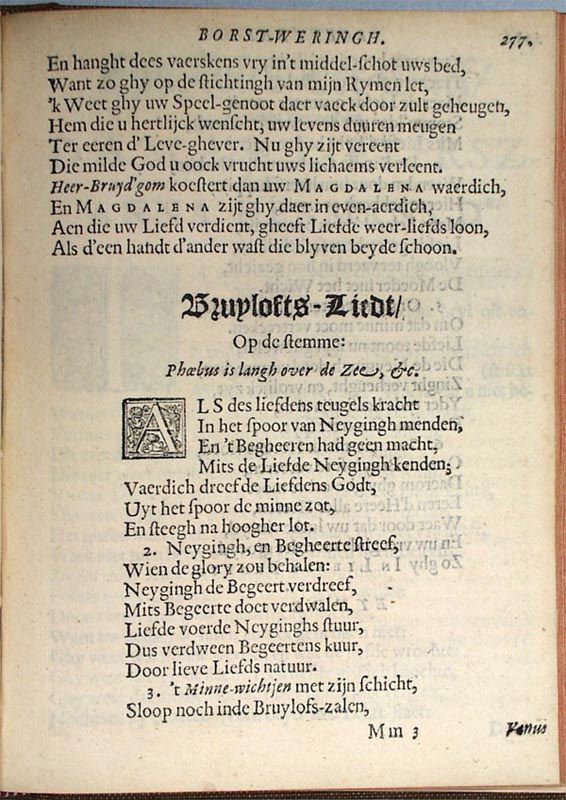 BORST-WERINGH. 277.
En hanght dees vaerskens vry in't middel-schot uws bed,
Want zo ghy op de stichtingh van mijn Rymen let,
'k Weet ghy uw Speel-genoot daer vaeck door zult geheugen,
Hem die u hertlijck wenscht, uw levens duuren meugen
Ter eeren d' Leve-ghever. Nu ghy zijt vereent
Die milde God u oock vrucht uws lichaems verleent.
Heer-Bruyd'gom koestert dan uw MAGDALENA waerdich,
En MAGDALENA zijt ghy daer in even-aerdich,
Aen die uw Liefd verdient, gheeft Liefde weer-liefds loon,
Als d'een handt d'ander wast die blyven beyde schoon.
Bruylofts-Liedt/
Op de stemme:
Phœbus is langh over de Zee, &c.
ALS des liefdens teugels kracht
In het spoor van Neygingh menden,
En 't Begheeren had geen macht,
Mits de Liefde Neygingh kenden;
Vaerdich dreef de Liefdens Godt,
Uyt het spoor de minne zot,
En steegh na hoogher lot.
2. Neygingh, en Begheerte streef,
Wien de glory zou behalen:
Neygingh de Begeert verdreef,
Mits Begeerte doet verdwalen,
Liefde voerde Neyginghs stuur,
Dus verdween Begeertens kuur,
Door lieve Liefds natuur.
3. 't Minne-wichtjen met zijn schicht,
Sloop noch inde Bruylofs-zalen,
Mm 3 Venus